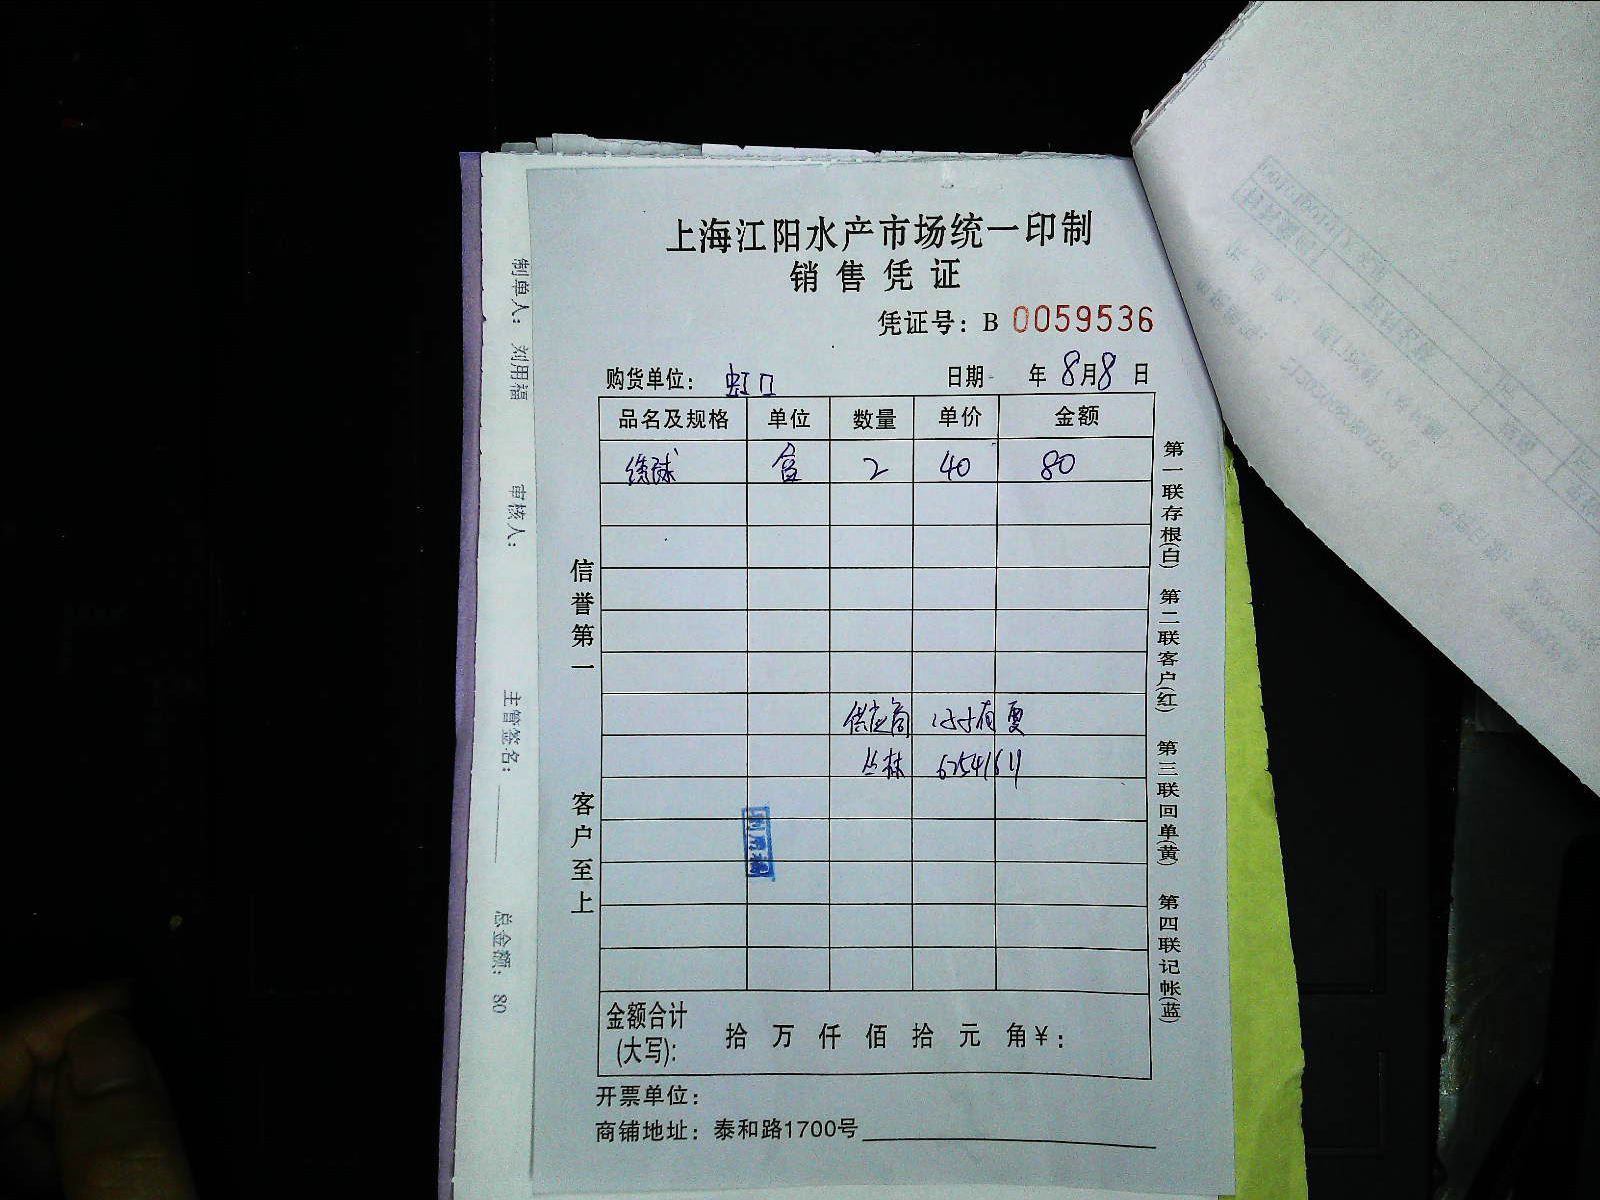 上海江阳水产市场统一印制
销售凭证
凭证号：B 0059536
购货单位：虹口 日期 年8月8日
品名及规格 单位 数量 单价 金额
盒 2 40 80
供应商
丛林 62541611
信誉第一 客户至上
第一联存根(白) 第二联客户(红) 第三联回单(黄) 第四联记帐(蓝)
金额合计(大写)： 拾 万 仟 佰 拾 元 角￥：
开票单位：
商铺地址：泰和路1700号
制单人：刘用福 审核人： 主管签名： 总金额：80
刘用福